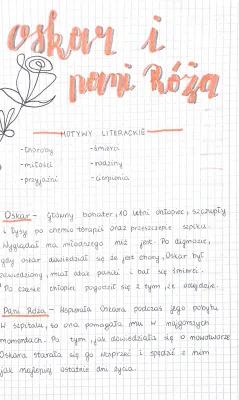 Oskar i
pani Róża
MOTYWY LITERACKIE
-choroby
-śmierci
-miłości
-rodziny
-przyjaźni
-cierpienia
Oskar - główny bohater, 10 letni chłopiec, szczupły
i łysy po chemio terapii oraz przeszczepie szpiku.
Wyglądał na młodszego niż jest. Po diagnozie,
gdy oskar dowiedział się że jest chory, Oskar był
zawiedziony, miał atak paniki i bał się śmierci.
Po czasie chłopiec pogodził się z tym, że odejdzie.
Pani Róża - Wspierała Oskara podczas jego pobytu
w szpitalu, to ona pomagała mu w najgorszych
momentach. Po tym jak dowiedziała się o nowotworze
Oskara starała się go wesprzeć i spędzić z nim
jak najlepiej ostatnie dni życia.